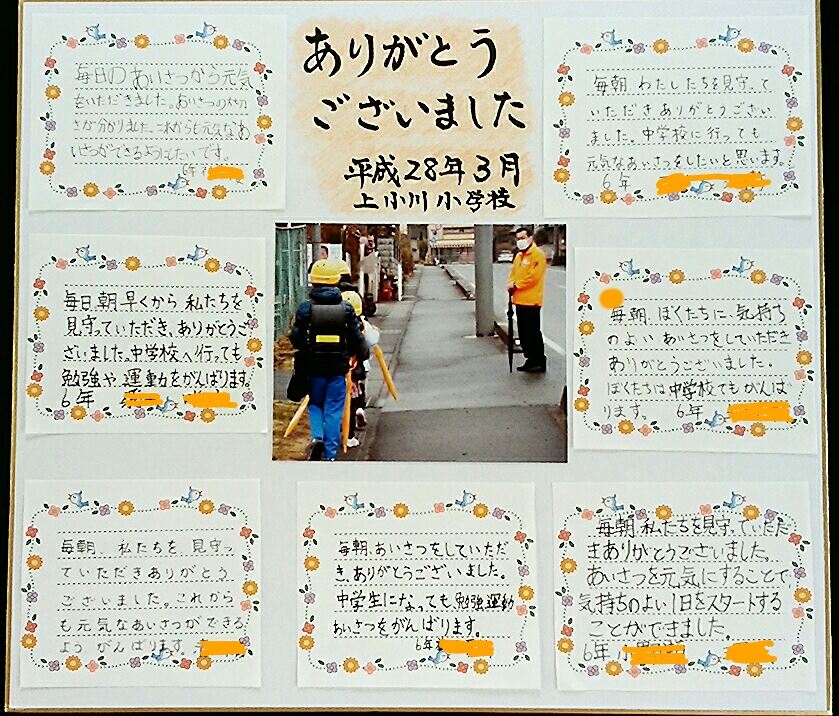 ありがとう
ございました
平成28年3月
上小川小学校
毎日のあいさつから元気
をいただきました。あいさつの大切
さが分かりました。これからも元気なあ
いさつができるようにしたいです。
6年
毎朝、わたしたちを見守って
いただきありがとうござい
ました。中学校に行っても
元気なあいさつをしたいと思います。
6年
毎日、朝早くから私たちを
見守っていただき、ありがとうご
ざいました。中学校へ行っても
勉強や運動をがんばります。
6年
毎朝、ぼくたちに、気持ち
のよいあいさつをしていただき
ありがとうございました。
ぼくたちは中学校でもがんば
ります。 6年
毎朝、私たちを見守っ
ていただきありがとう
ございました。これから
も元気なあいさつができる
よう、がんばります。
毎朝、あいさつをしていただ
き、ありがとうございました。
中学生になっても勉強運動
あいさつをがんばります。
6年
毎朝、私たちを見守っていただ
きありがとうございました。
あいさつを元気にすることで
気持ちのよい1日をスタートする
ことができました。
6年 小